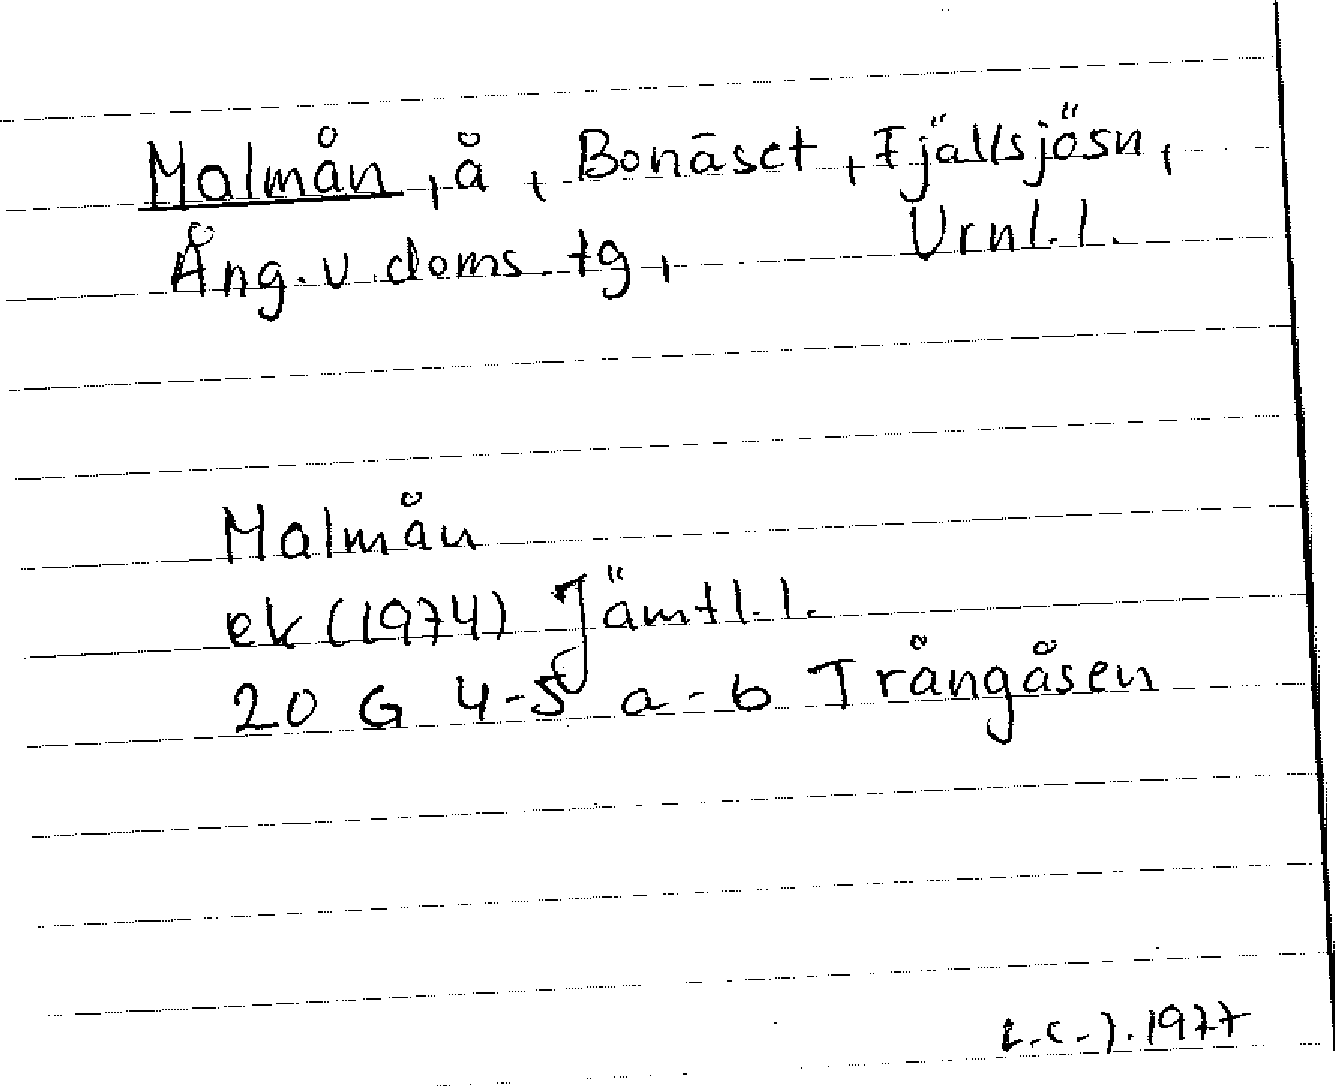 Malmån, å, Bonäset, Fjällsjösn,
Ång. v. doms. tg, Vrnl. l.
Malmån
ek (1974) Jämtl. l.
20 G 4-5 a-b Trångåsen
1977